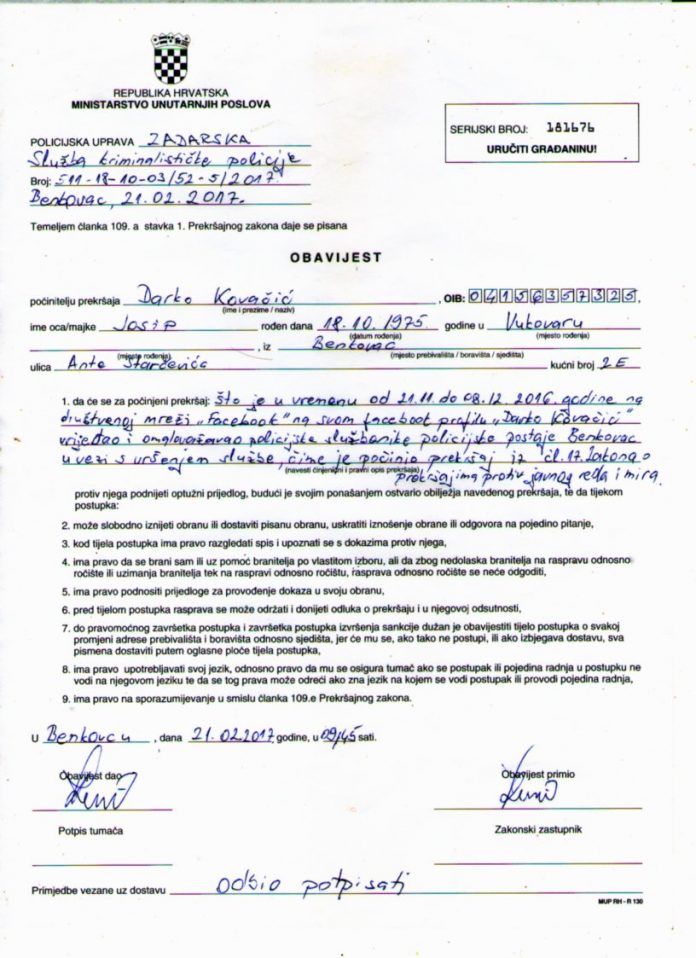 REPUBLIKA HRVATSKA
MINISTARSTVO UNUTARNJIH POSLOVA
SERIJSKI BROJ: 181676
URUČITI GRAĐANINU!
POLICIJSKA UPRAVA ZADARSKA
Služba kriminalističke policije
Broj: 511-18-10-03/52-5/2017.
Benkovac, 21.02.2017.
Temeljem članka 109. a stavka 1. Prekršajnog zakona daje se pisana
OBAVIJEST
počinitelju prekršaja Darko Kovačić, OIB: 04156357325,
(ime i prezime / naziv)
ime oca/majke Josip rođen dana 18.10.1975 godine u Vukovaru
(datum rođenja) (mjesto rođenja)
, iz Benkovac
(mjesto rođenja) (mjesto prebivališta / boravišta / sjedišta)
ulica Ante Starčevića kućni broj 2E
1. da će se za počinjeni prekršaj: što je u vremenu od 21.11. do 08.12. 2016. godine na
društvenoj mreži „Facebook" na svom facebook profilu „Darko Kovačić"
vrijeđao i omalovažavao policijske službenike policijske postaje Benkovac
u vezi s vršenjem službe, čime je počinio prekršaj iz čl. 17. Zakona o
(navesti činjenični i pravni opis prekršaja) prekršajima protiv javnog reda i mira
protiv njega podnijeti optužni prijedlog, budući je svojim ponašanjem ostvario obilježja navedenog prekršaja, te da tijekom
postupka:
2. može slobodno iznijeti obranu ili dostaviti pisanu obranu, uskratiti iznošenje obrane ili odgovora na pojedino pitanje,
3. kod tijela postupka ima pravo razgledati spis i upoznati se s dokazima protiv njega,
4. ima pravo da se brani sam ili uz pomoć branitelja po vlastitom izboru, ali da zbog nedolaska branitelja na raspravu odnosno
ročište ili uzimanja branitelja tek na raspravi odnosno ročištu, rasprava odnosno ročište se neće odgoditi,
5. ima pravo podnositi prijedloge za provođenje dokaza u svoju obranu,
6. pred tijelom postupka rasprava se može održati i donijeti odluka o prekršaju i u njegovoj odsutnosti,
7. do pravomoćnog završetka postupka i završetka postupka izvršenja sankcije dužan je obavijestiti tijelo postupka o svakoj
promjeni adrese prebivališta i boravišta odnosno sjedišta, jer će mu se, ako tako ne postupi, ili ako izbjegava dostavu, sva
pismena dostaviti putem oglasne ploče tijela postupka,
8. ima pravo upotrebljavati svoj jezik, odnosno pravo da mu se osigura tumač ako se postupak ili pojedina radnja u postupku ne
vodi na njegovom jeziku te da se tog prava može odreći ako zna jezik na kojem se vodi postupak ili provodi pojedina radnja,
9. ima pravo na sporazumijevanje u smislu članka 109.e Prekršajnog zakona.
U Benkovcu, dana 21.02.2017 godine, u 09,45 sati.
Obavijest dao Obavijest primio
Potpis tumača Zakonski zastupnik
Primjedbe vezane uz dostavu odbio potpisati
MUP RH - R 130